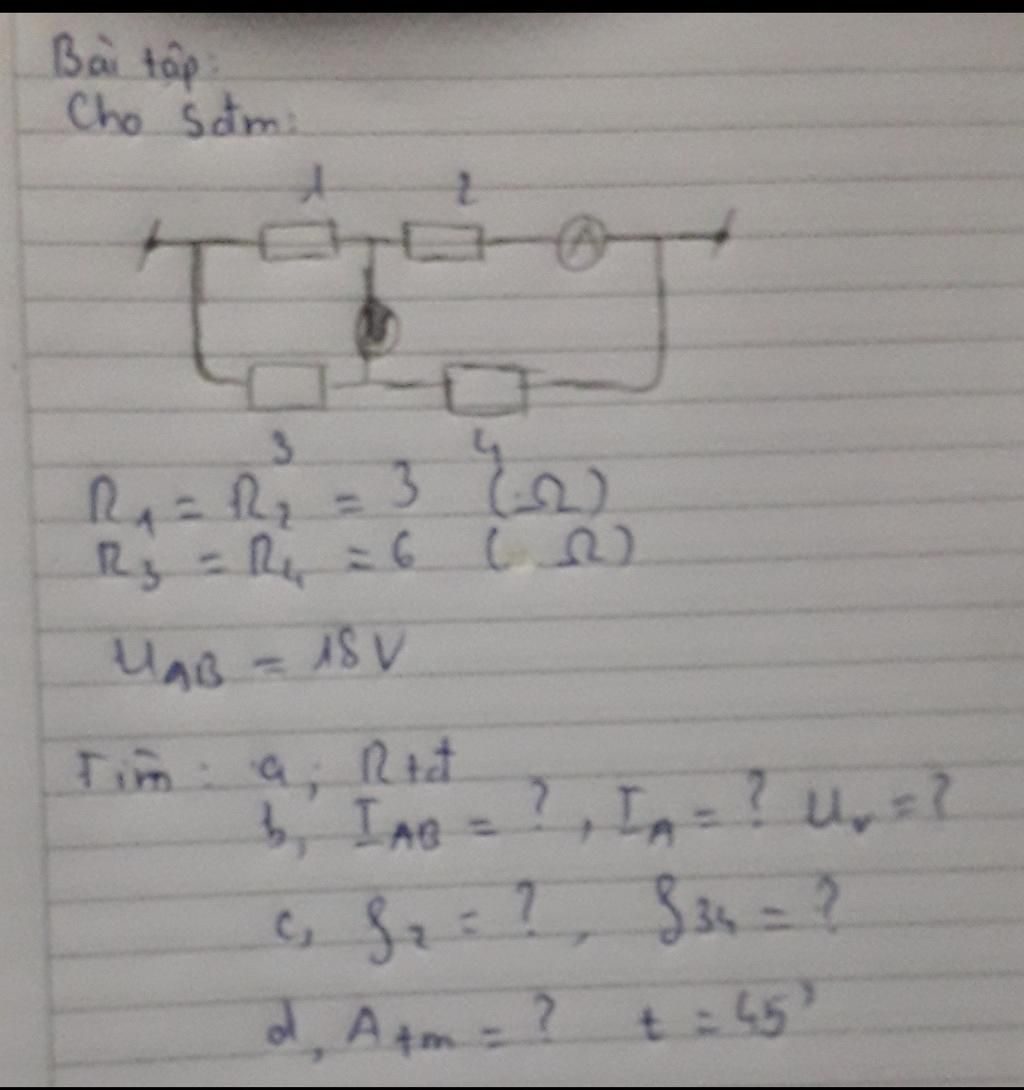 Bài tập:
Cho Sđm:
1 2
A
3 4
R₁ = R₂ = 3 (Ω)
R₃ = R₄ = 6 (Ω)
U_AB = 18V
Tìm: a; Rtđ
b, I_AB = ?, I_A = ? U_v = ?
c, ρ₂ = ?, ρ₃₄ = ?
d, A_tm = ? t = 45'